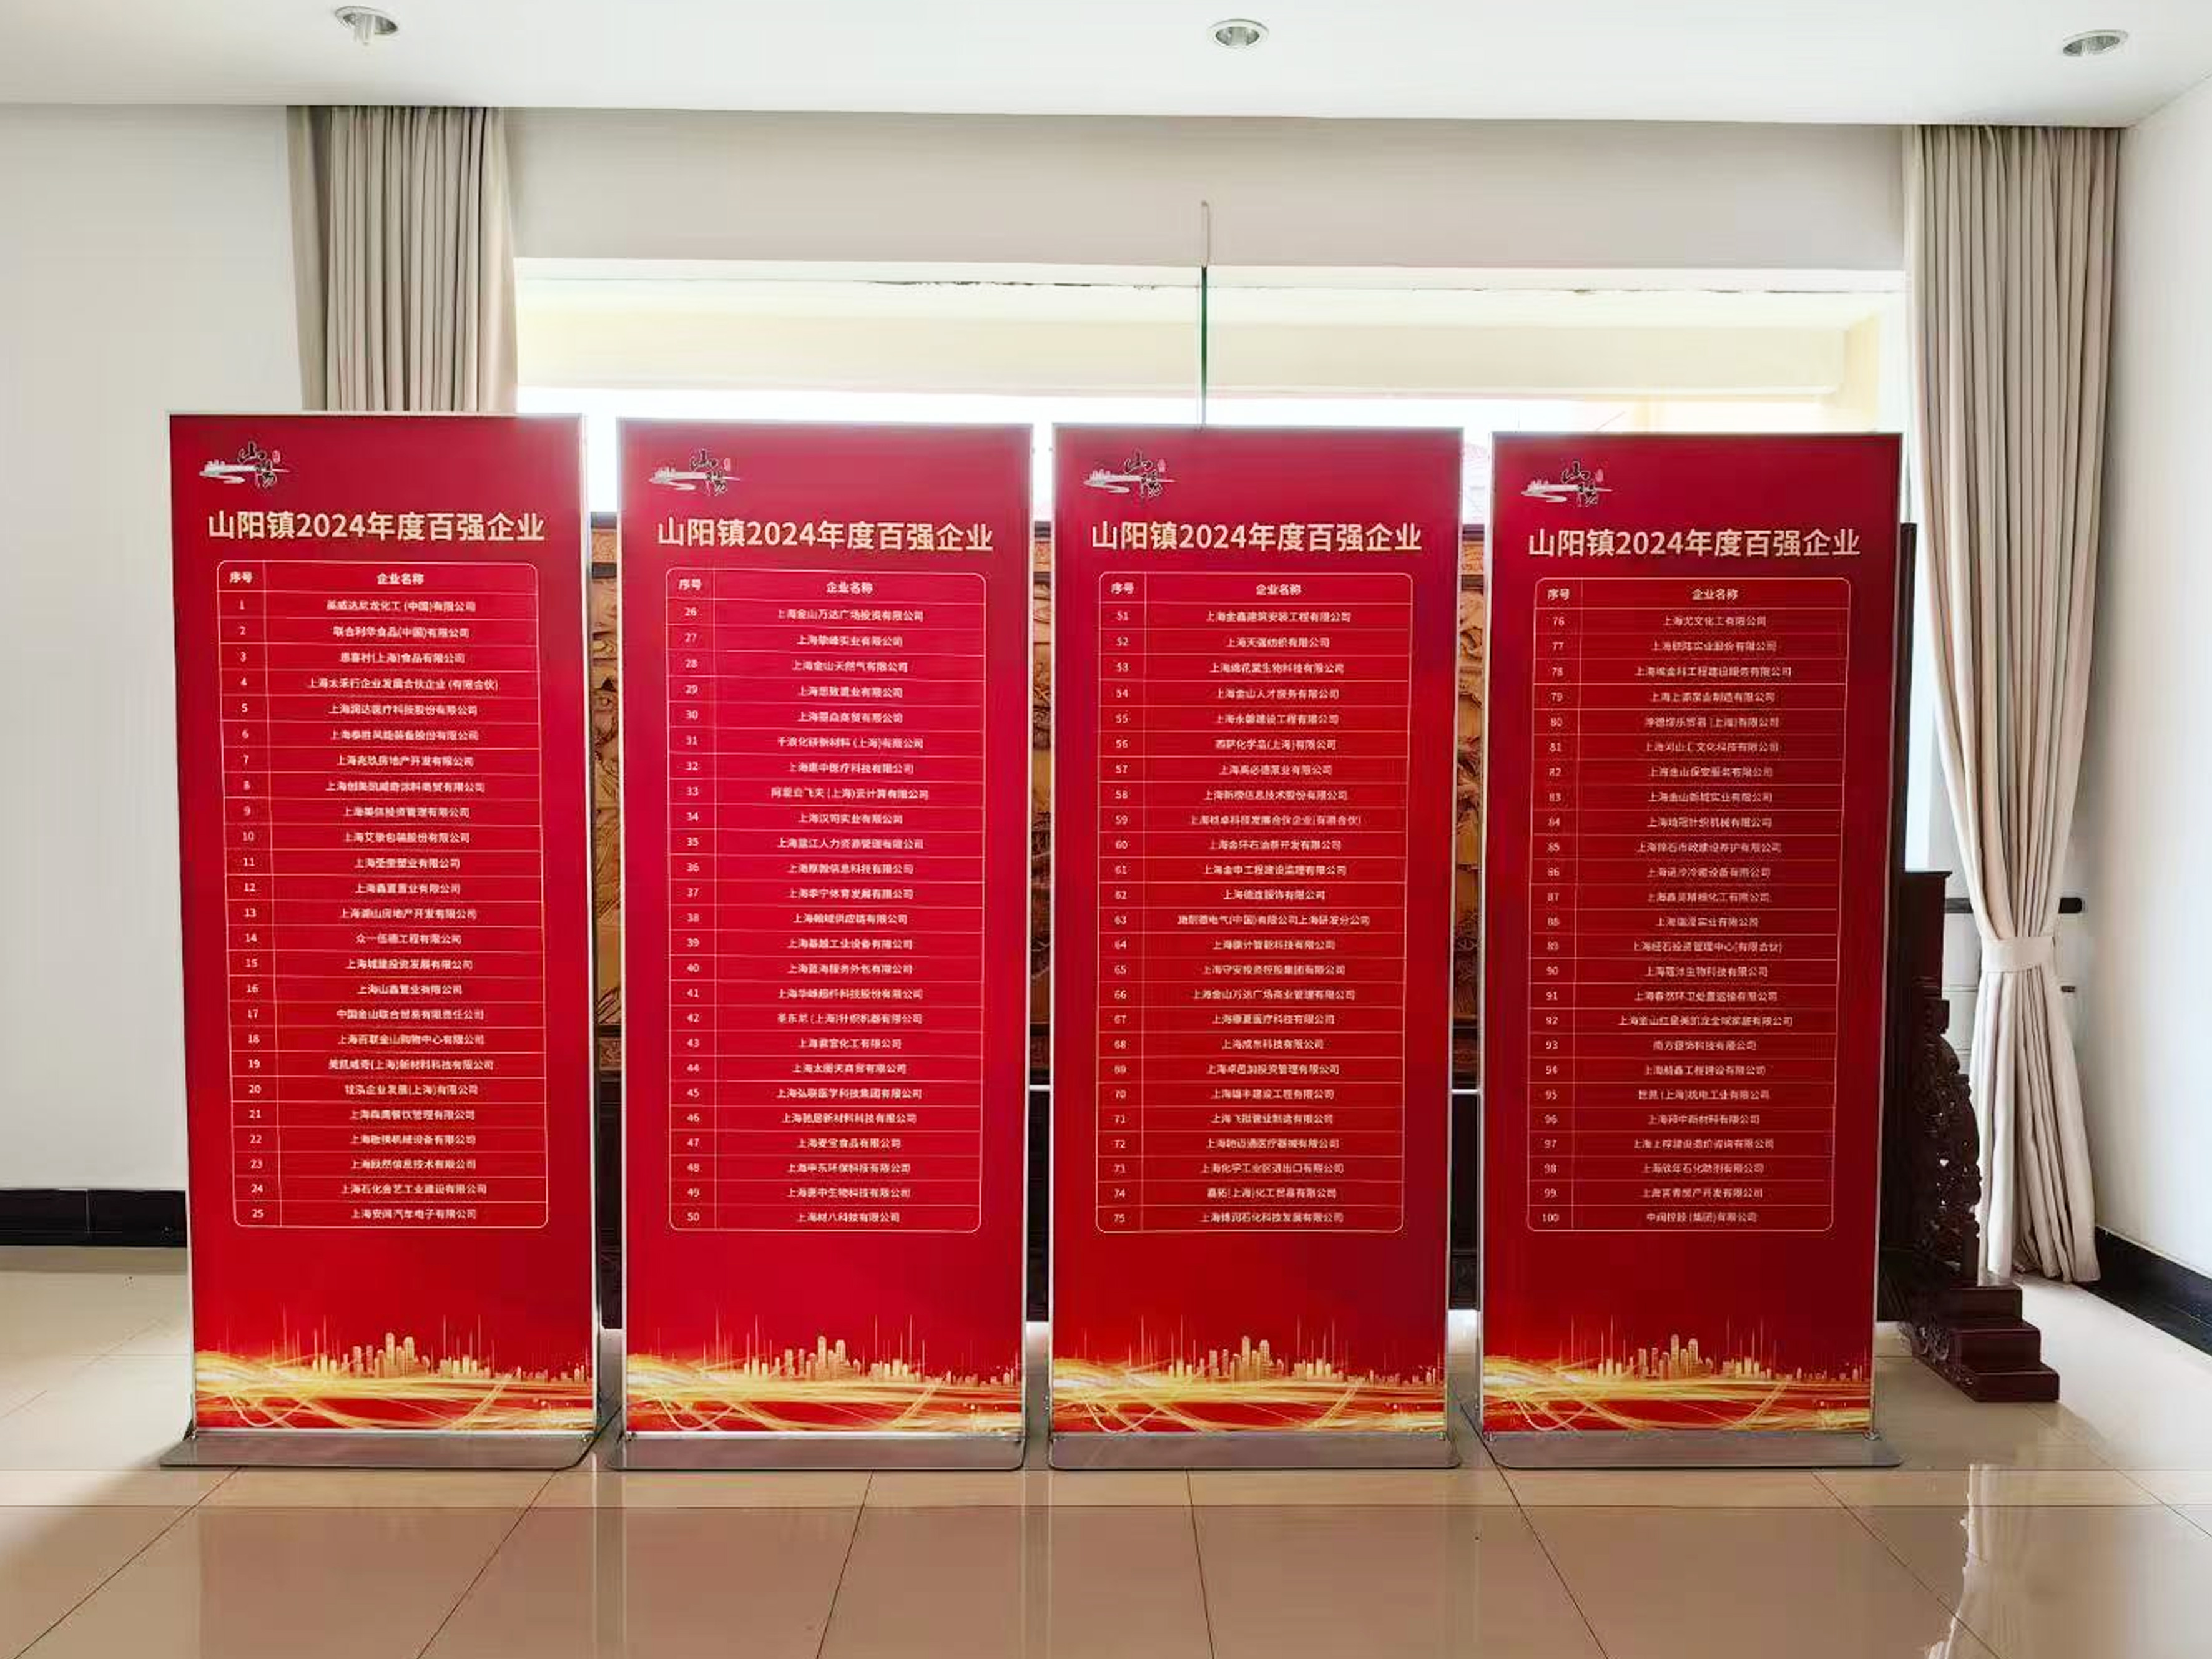 山阳
山阳镇2024年度百强企业
序号 企业名称
1 英威达尼龙化工(中国)有限公司
2 联合利华食品(中国)有限公司
3 喜村(上海)食品有限公司
4 上海太禾行企业发展合伙企业(有限合伙)
5 上海润达医疗科技股份有限公司
6 上海泰胜风能装备股份有限公司
7 上海兆玖房地产开发有限公司
8 上海创美凯威奇涂料商贸有限公司
9 上海英信投资管理有限公司
10 上海艾录包装股份有限公司
11 上海圣奎塑业有限公司
12 上海鑫置业有限公司
13 上海湖山房地产开发有限公司
14 众一伍德工程有限公司
15 上海城建投资发展有限公司
16 上海山鑫置业有限公司
17 中国金山联合贸易有限责任公司
18 上海百联金山购物中心有限公司
19 美凯威奇(上海)新材料科技有限公司
20 企业发展(上海)有限公司
21 上海森鹰餐饮管理有限公司
22 上海机械设备有限公司
23 上海跃然信息技术有限公司
24 上海石化金艺工业建设有限公司
25 上海安闻汽车电子有限公司
山阳
山阳镇2024年度百强企业
序号 企业名称
26 上海金山万达广场投资有限公司
27 上海挚峰实业有限公司
28 上海金山天然气有限公司
29 上海思致置业有限公司
30 上海商贸有限公司
31 新材料(上海)有限公司
32 上海惠中医疗科技有限公司
33 阿里云飞天(上海)云计算有限公司
34 上海汉司实业有限公司
35 上海蓝江人力资源管理有限公司
36 上海信息科技有限公司
37 上海宁体育发展有限公司
38 上海供应链有限公司
39 上海基越工业设备有限公司
40 上海蓝海服务外包有限公司
41 上海华峰超纤科技股份有限公司
42 圣东尼(上海)针织机器有限公司
43 上海化工有限公司
44 上海太商贸有限公司
45 上海弘联医学科技集团有限公司
46 上海驰居新材料科技有限公司
47 上海麦宝食品有限公司
48 上海申东环保科技有限公司
49 上海惠中生物科技有限公司
50 上海材八科技有限公司
山阳
山阳镇2024年度百强企业
序号 企业名称
51 上海金鑫建筑安装工程有限公司
52 上海天强纺织有限公司
53 上海绵花棠生物科技有限公司
54 上海金山人才服务有限公司
55 上海永建设工程有限公司
56 西萨化学品(上海)有限公司
57 上海高必德泵业有限公司
58 上海新榜信息技术股份有限公司
59 上海科技发展合伙企业(有限合伙)
60 上海金环石油开发有限公司
61 上海金申工程建设监理有限公司
62 上海德连服饰有限公司
63 施耐德电气(中国)有限公司上海研发分公司
64 上海康计智能科技有限公司
65 上海守安投资控股集团有限公司
66 上海金山万达广场商业管理有限公司
67 上海康夏医疗科技有限公司
68 上海成东科技有限公司
69 上海卓邑加投资管理有限公司
70 上海雄丰建设工程有限公司
71 上海飞挺管业制造有限公司
72 上海驰迈通医疗器械有限公司
73 上海化学工业区进出口有限公司
74 嘉拓(上海)化工贸易有限公司
75 上海博润石化科技发展有限公司
山阳
山阳镇2024年度百强企业
序号 企业名称
76 上海尤文化工有限公司
77 上海实业股份有限公司
78 上海埃金科工程建设服务有限公司
79 上海上源泵业制造有限公司
80 贸易(上海)有限公司
81 上海河山汇文化科技有限公司
82 上海金山保安服务有限公司
83 上海金山新城实业有限公司
84 上海琦冠针织机械有限公司
85 上海锦石市政建设养护有限公司
86 上海诺冷冷暖设备有限公司
87 上海精细化工有限公司
88 上海实业有限公司
89 上海投资管理中心(有限合伙)
90 上海蔻沐生物科技有限公司
91 上海春然环卫处置运输有限公司
92 上海金山红星美凯龙全球家居有限公司
93 南方科技有限公司
94 上海鑫工程建设有限公司
95 (上海)机电工业有限公司
96 上海翔中新材料有限公司
97 上海上梓建设造价咨询有限公司
98 上海依年石化助剂有限公司
99 上海房产开发有限公司
100 中阀控股(集团)有限公司